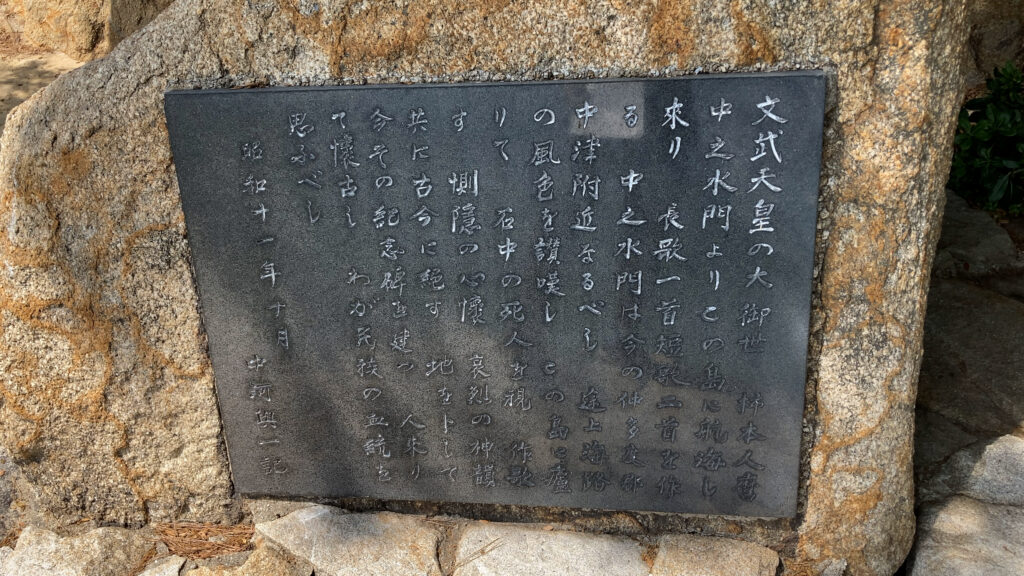 文武天皇の大御世 柿本人麿
中之水門よりこの島に航海し
來り 長歌一首短歌二首を作
る 中之水門は今の仲多度郡
中津附近なるべし 途上海路
の風色を讃嘆し この島に廬
りて 石中の死人を視 作歌
す 惻隠の心懐 哀刻の神韻
共に古今に絶す 地を卜して
今その記念碑を建つ 人来り
て懐古し わが民族の血統を
思ふべし
昭和十一年十月 中河與一記